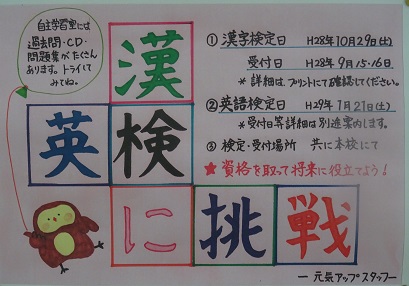 自主学習室には
過去問・CD・
問題集がたくさん
あります。トライして
みてね。
漢
英検
に挑戦
① 漢字検定日 H28年10月29日(土)
受付日 H28年9月15・16日
* 詳細はプリントにて確認してください。
② 英語検定日 H29年1月21日(土)
* 受付日等詳細は別途案内します。
③ 検定・受付場所 共に本校にて
★ 資格を取って将来に役立てよう!
— 元気アップスタッフ —